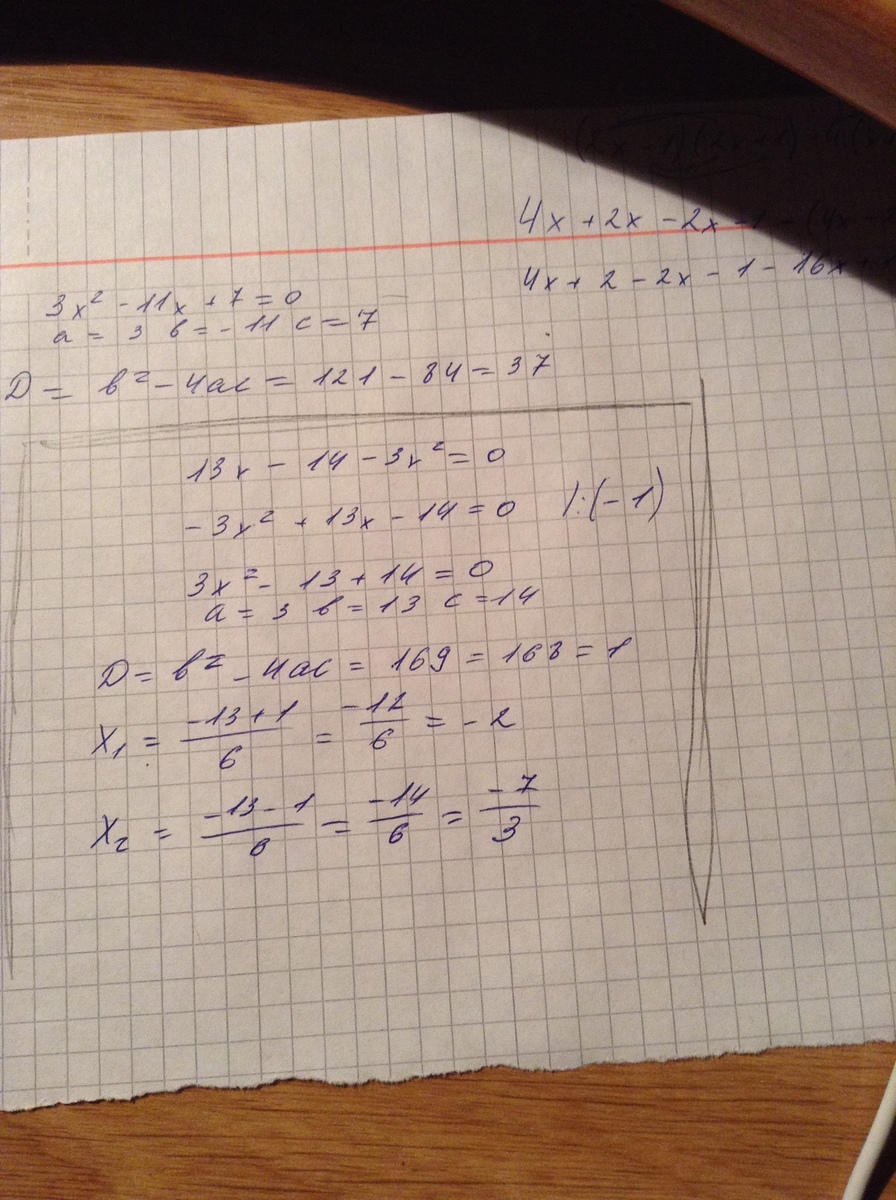 4x + 2x - 2x - 1 - (4x -
4x + 2 - 2x - 1 - 16x + 1
3x² - 11x + 7 = 0
a = 3 в = - 11 c = 7
D = в² - 4ac = 121 - 84 = 37
13x - 14 - 3x² = 0
- 3x² + 13x - 14 = 0 /:(- 1)
3x² - 13 + 14 = 0
a = 3 в = 13 c = 14
D = в² - 4ac = 169 = 168 = 1
X₁ = \frac{-13+1}{6} = \frac{-12}{6} = - 2
X₂ = \frac{-13-1}{6} = \frac{-14}{6} = \frac{-7}{3}